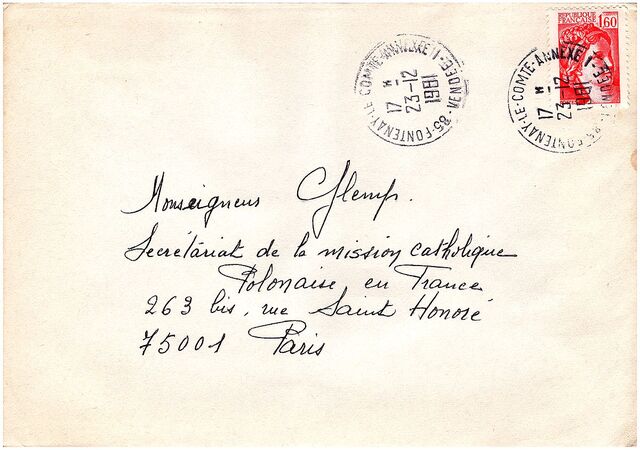 REPUBLIQUE FRANÇAISE 1,60
85-FONTENAY-LE-COMTE-ANNEXE 1 VENDEE
17 H
23-12
1981
85-FONTENAY-LE-COMTE-ANNEXE 1 VENDEE
17 H
23-12
1981
Monseigneur Glemp.
Secrétariat de la mission catholique
Polonaise en France
263 bis, rue Saint Honoré
75001 Paris